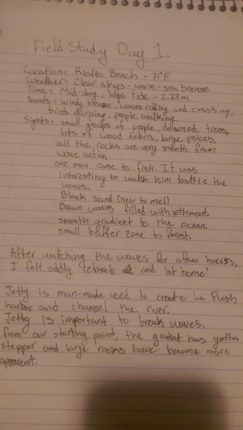 Field Study Day 1
Location = Rialto Beach - 71°F
Weather = Clear skys - warm - sea breeze
Time = Mid-day - high tide - 2.23m
Sounds = windy breeze, waves rolling and crashing,
birds chirping, people walking
Sights = small groups of people, downed trees,
lots of wood debris, large pieces,
all the rocks are very smooth from
wave action
one man came to fish. It was
interesting to watch him battle the
waves.
Black sand (new to me!)
Brown waves filled with settiment.
smooth gradient to the ocean.
small buffer zone to forest.
After watching the waves for a few hours,
I felt oddly relaxed and 'at home'
Jetty is man-made, used to create La Push
harbor and channel the river.
Jetty is important to break waves.
From our starting point, the gradient has gotten
stepper and large rocks have become more
apparent.